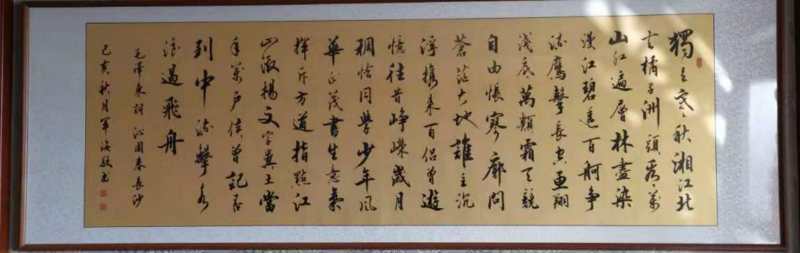 獨立寒秋湘江北
去橘子洲頭看萬
山紅遍層林盡染
漫江碧透百舸爭
流鷹擊長空魚翔
淺底萬類霜天競
自由悵寥廓問
蒼茫大地誰主沉
浮攜來百侶曾遊
憶往昔崢嶸歲月
稠恰同學少年風
華正茂書生意氣
揮斥方遒指點江
山激揚文字糞土當
年萬戶侯曾記否
到中流擊水
浪遏飛舟
毛澤東詞沁園春長沙
己亥秋月軍海敬书